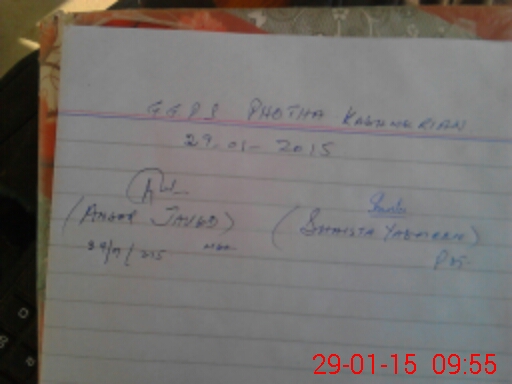 GGPS PHOTHA KASHMERIAN
29-01-2015
(ANSAR JAVED)
(SHAISTA YASMEEN)
PST
29-01-15 09:55